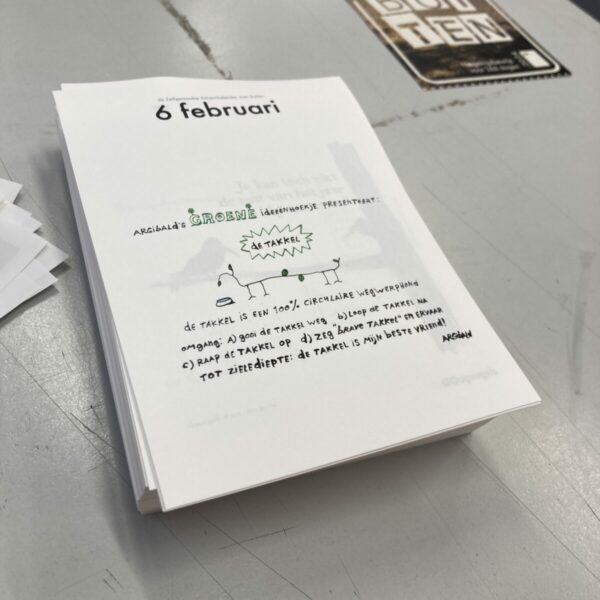 6 februari
ARGIBALD'S GROENE ideeënhoekje PRESENTEERT:
de TAKKEL
de TAKKEL is een 100% circulaire wegwerphond
omgang: a) gooi de TAKKEL weg b) loop de TAKKEL na
c) RAAP de TAKKEL op d) zeg "brave TAKKEL" en ervaar
TOT zielediepte: de TAKKEL is mijn beste vriend!
ARGIBALD
TEN